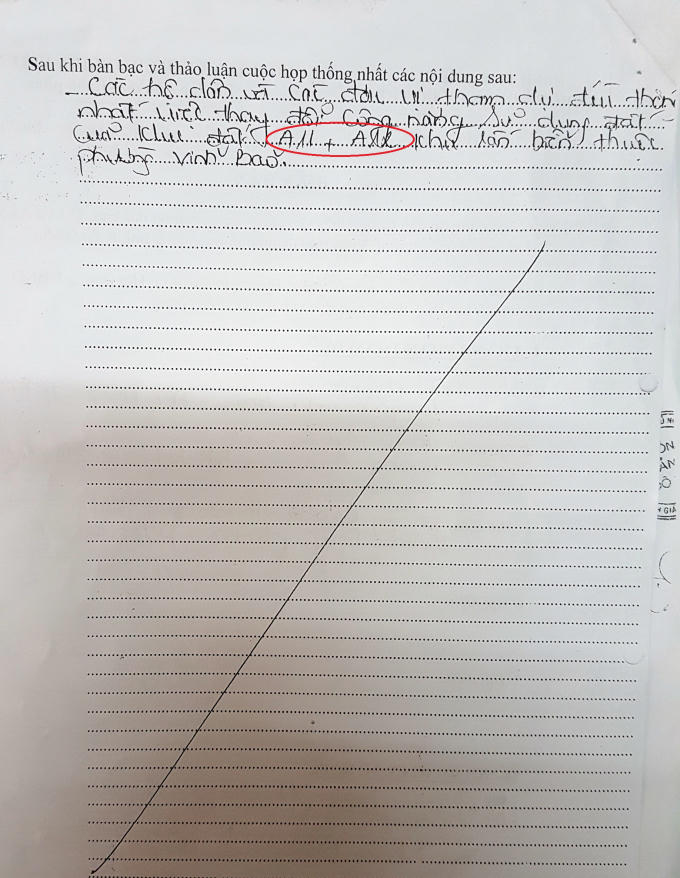 Sau khi bàn bạc và thảo luận cuộc họp thống nhất các nội dung sau:
- Các hộ dân và các đơn vị tham dự đều thống
nhất việc thay đổi công năng sử dụng đất
của khu đất A11 + A12 khu lấn biển thuộc
phường Vĩnh Bảo.